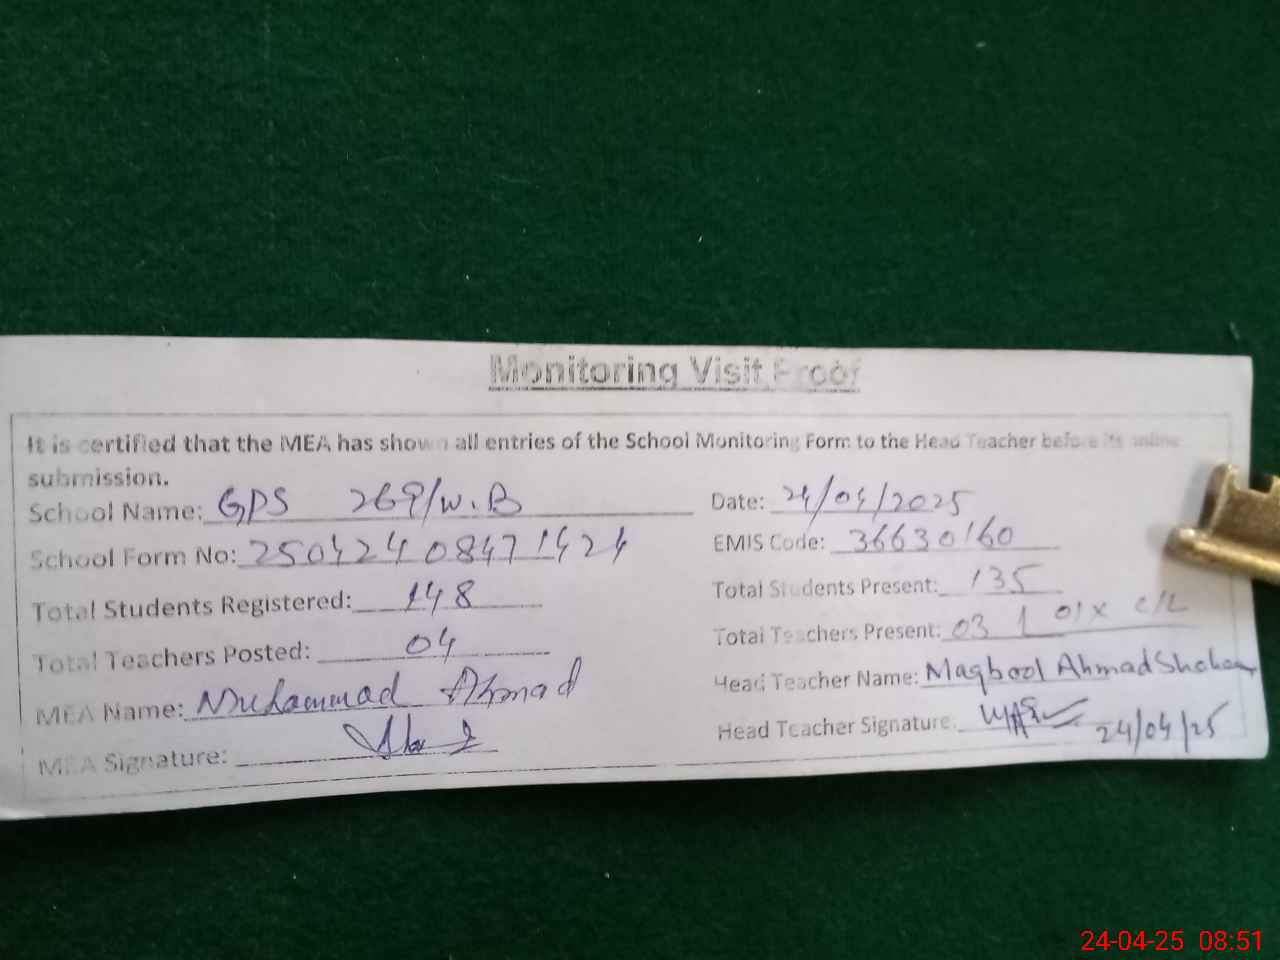 Monitoring Visit Proof
It is certified that the MEA has shown all entries of the School Monitoring Form to the Head Teacher before its online
submission.
School Name: GPS 269/W.B
Date: 24/04/2025
School Form No: 25042408471424
EMIS Code: 36630160
Total Students Registered: 148
Total Students Present: 135
Total Teachers Posted: 04
Total Teachers Present: 03 01x C/L
MEA Name: Muhammad Ahmad
Head Teacher Name: Maqbool Ahmad
MEA Signature:
Head Teacher Signature: 24/04/25
24-04-25 08:51